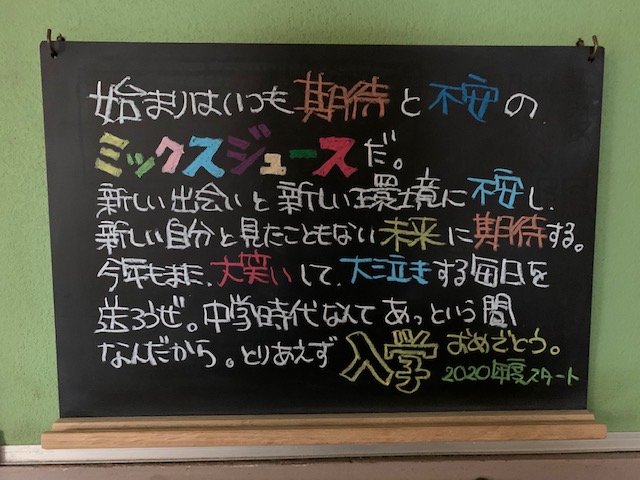 始まりはいつも期待と不安の
ミックスジュースだ。
新しい出会いと新しい環境に不安し、
新しい自分と見たこともない未来に期待する。
今年もまた、大笑いして、大泣きする毎日を
送ろうぜ。中学時代なんてあっという間
なんだから。とりあえず入学おめでとう。
2020年度スタート